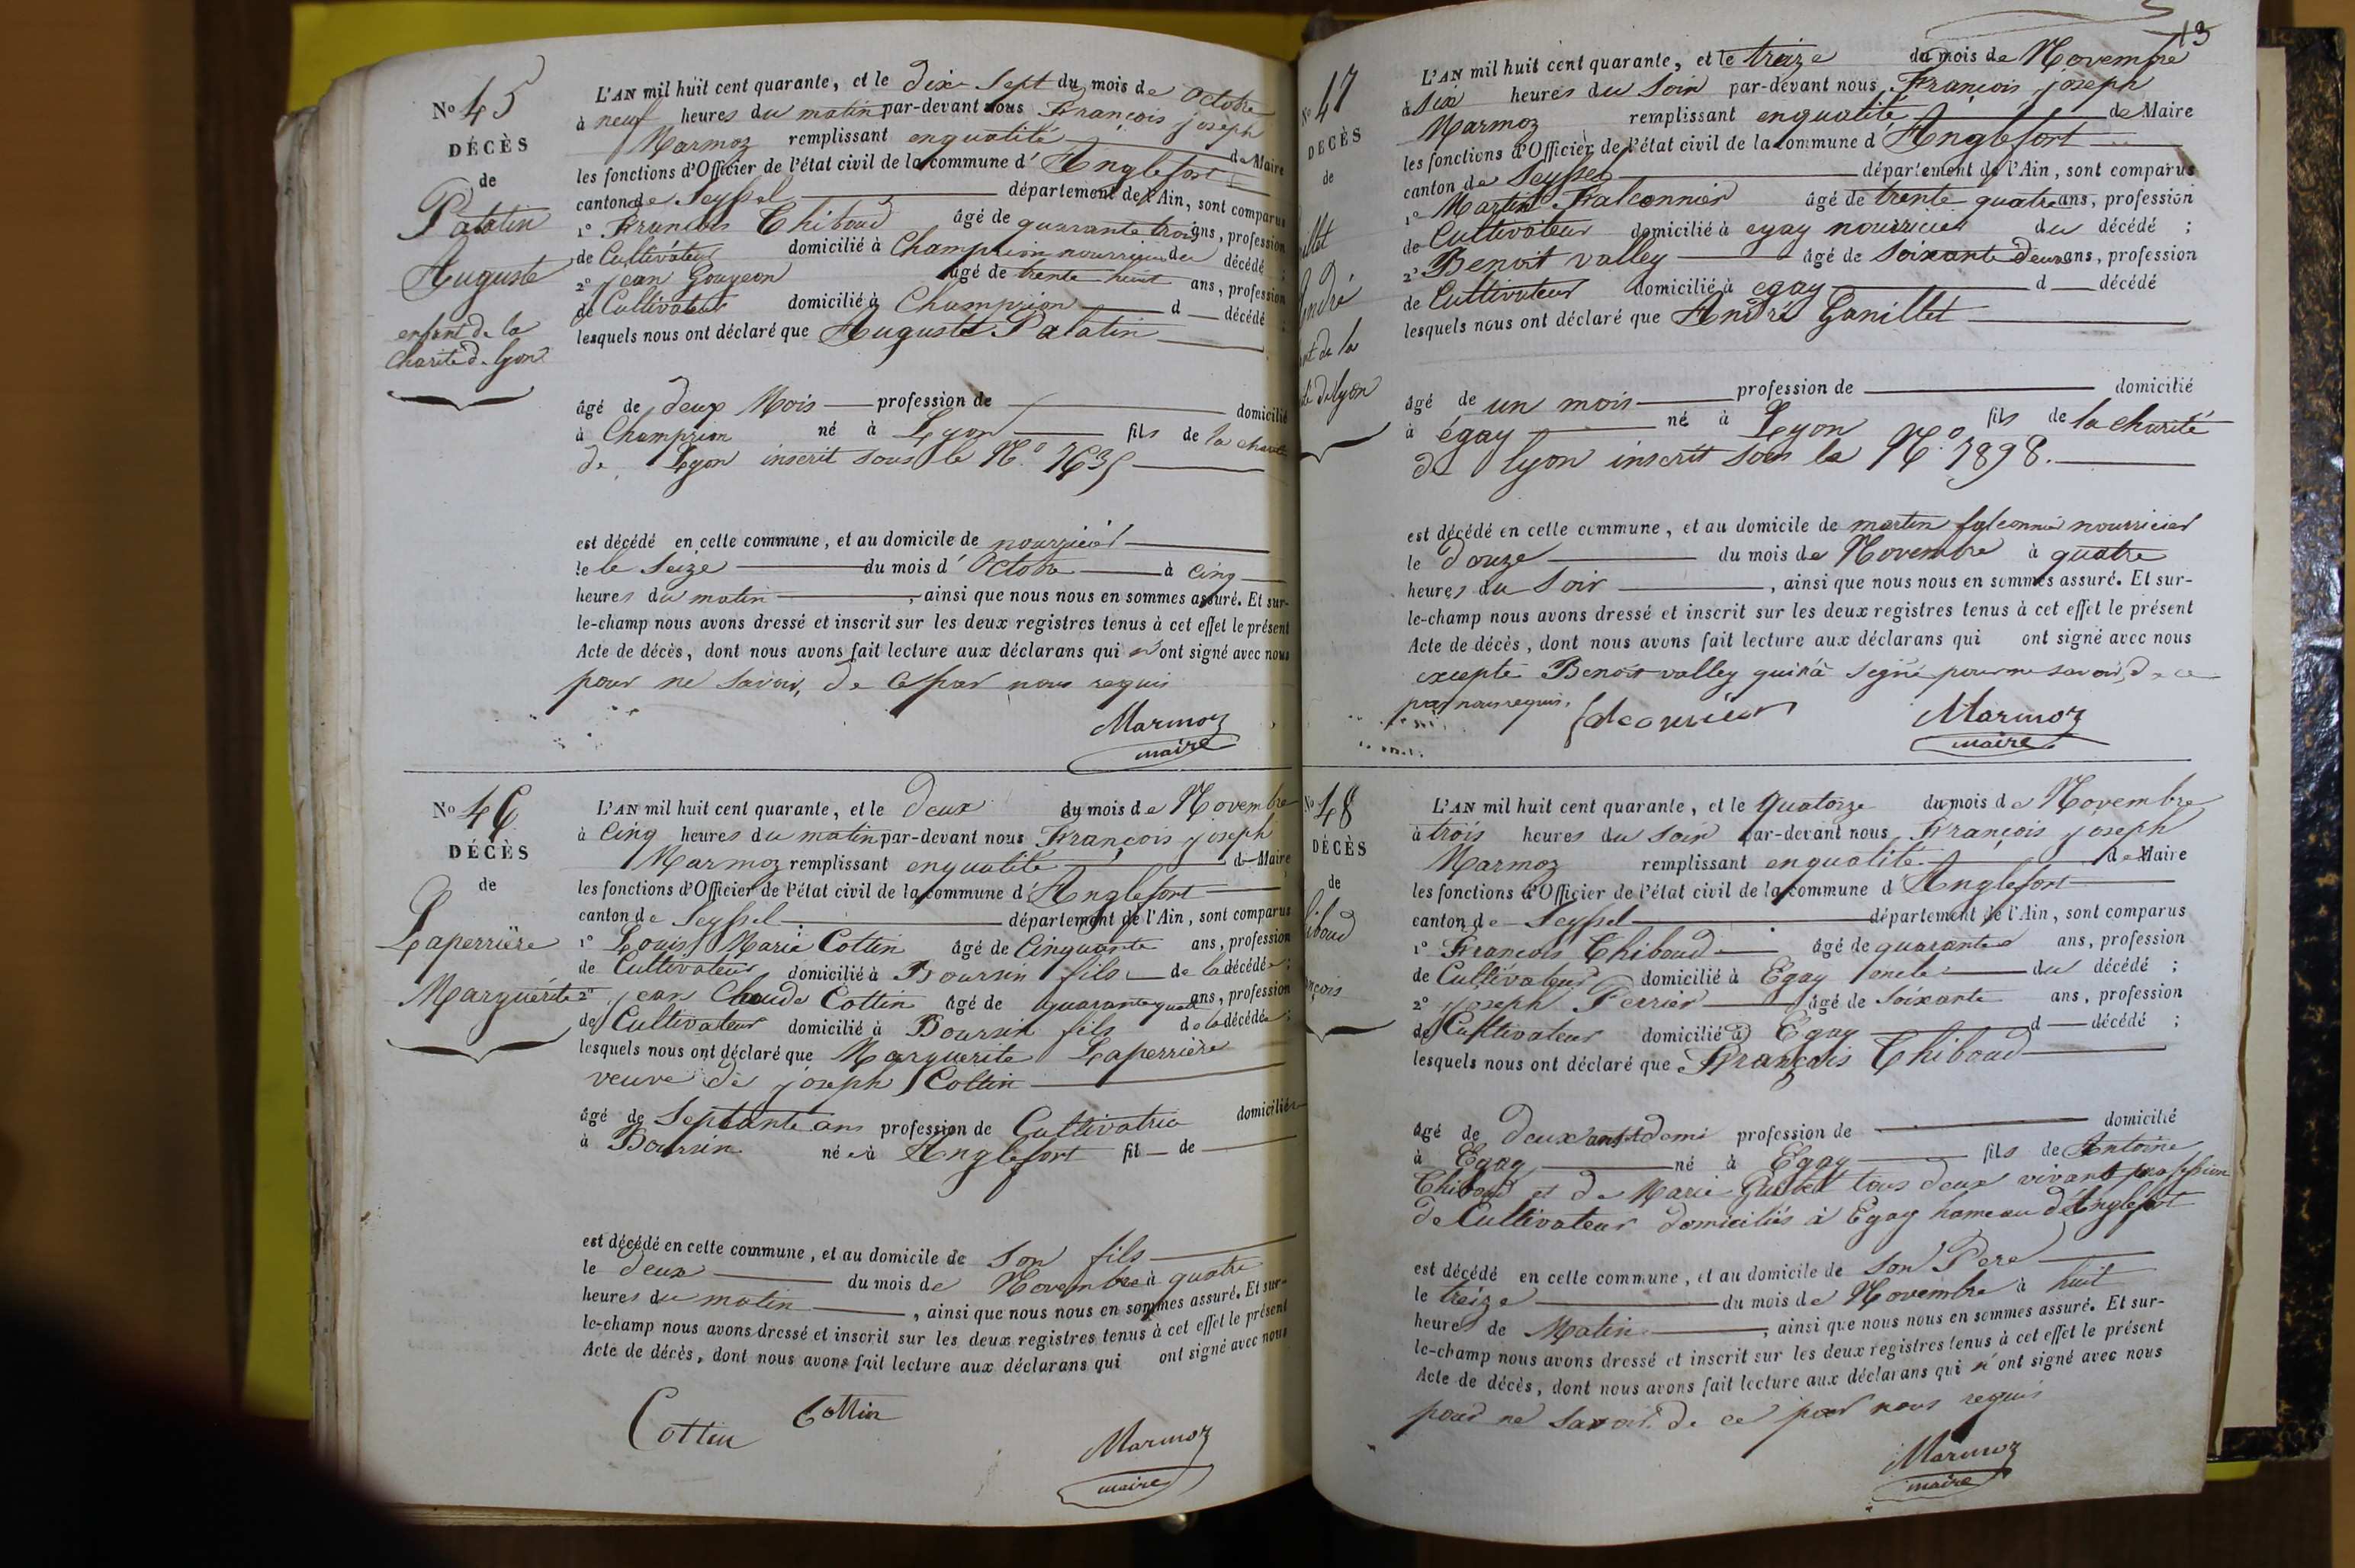 No 45
DÉCÈS
de
Palatin
Auguste
enfant de la
Charité de Lyon
L'AN mil huit cent quarante, et le dix Sept du mois de Octobre
à neuf heures du matin par-devant nous François joseph
Marmoz remplissant en qualité de Maire
les fonctions d'Officier de l'état civil de la commune d'Anglefort
canton de Seyssel département de l'Ain, sont comparus
1° François Thiboud âgé de quarante trois ans, profession
de Cultivateur domicilié à Champrion nourricier du décédé ;
2° jean Goujeon âgé de trente huit ans, profession
de Cultivateur domicilié à Champrion d décédé
lesquels nous ont déclaré que Auguste Palatin
âgé de deux Mois profession de domicilié
à Champrion né à Lyon fils de la charité
de Lyon inscrit sous le N.°
est décédé en cette commune, et au domicile de nourricier
le le Seize du mois d'Octobre à cinq
heures du matin, ainsi que nous nous en sommes assuré. Et sur-
le-champ nous avons dressé et inscrit sur les deux registres tenus à cet effet le présent
Acte de décès, dont nous avons fait lecture aux déclarans qui n'ont signé avec nous
pour ne savoir, de ce par nous requis
Marmoz
maire
No 46
DÉCÈS
de
Laperrière
Marguerite
L'AN mil huit cent quarante, et le Deux du mois de Novembre
à Cinq heures du matin par-devant nous François joseph
Marmoz remplissant en qualité de Maire
les fonctions d'Officier de l'état civil de la commune d'Anglefort
canton de Seyssel département de l'Ain, sont comparus
1° Louis Marie Cottin âgé de Cinquante ans, profession
de Cultivateur domicilié à Boursin fils de la décédée ;
2° jean Claude Cottin âgé de quarante quatre ans, profession
de Cultivateur domicilié à Boursin fils de la décédée ;
lesquels nous ont déclaré que Marguerite Laperrière
veuve de joseph Cottin
âgé de Septante ans profession de Cultivatrice domiciliée
à Boursin née à Anglefort fil de
est décédé en cette commune, et au domicile de Son fils
le deux du mois de Novembre à quatre
heures du matin, ainsi que nous nous en sommes assuré. Et sur-
le-champ nous avons dressé et inscrit sur les deux registres tenus à cet effet le présent
Acte de décès, dont nous avons fait lecture aux déclarans qui ont signé avec nous
Cottin Cottin
Marmoz
maire
13
No 47
DÉCÈS
de
illet
André
nt de la
té de lyon
L'AN mil huit cent quarante, et le treize du mois de Novembre
à six heures du Soir par-devant nous François joseph
Marmoz remplissant en qualité de Maire
les fonctions d'Officier de l'état civil de la commune d'Anglefort
canton de Seyssel département de l'Ain, sont comparus
1° Martin Falconnier âgé de trente quatre ans, profession
de Cultivateur domicilié à egay nourricier du décédé ;
2° Benoit valley âgé de Soixante Deux ans, profession
de Cultivateur domicilié à egay d décédé
lesquels nous ont déclaré que André Ganillet
âgé de un mois profession de domicilié
à égay né à Lyon fils de la charité
de lyon inscrit sous le N.° 7898.
est décédé en cette commune, et au domicile de martin falconnier nourricier
le Douze du mois de Novembre à quatre
heures du Soir, ainsi que nous nous en sommes assuré. Et sur-
le-champ nous avons dressé et inscrit sur les deux registres tenus à cet effet le présent
Acte de décès, dont nous avons fait lecture aux déclarans qui ont signé avec nous
excepté Benoit valley qui n'a Signé pour ne savoir, de ce
par nous requis.
Marmoz
maire
No 48
DÉCÈS
de
iboud
nçois
L'AN mil huit cent quarante, et le Quatorze du mois de Novembre
à trois heures du Soir par-devant nous François joseph
Marmoz remplissant en qualité de Maire
les fonctions d'Officier de l'état civil de la commune d'Anglefort
canton de Seyssel département de l'Ain, sont comparus
1° François Thiboud âgé de quarante ans, profession
de Cultivateur domicilié à Egay oncle du décédé ;
2° joseph Perrier âgé de Soixante ans, profession
de Cultivateur domicilié à Egay d décédé ;
lesquels nous ont déclaré que François Thiboud
âgé de deux ans et demi profession de domicilié
à Egay né à Egay fils de Antoine
Thiboud et de Marie tous deux vivant profession
de Cultivateur domiciliés à Egay hameau d'Anglefort
est décédé en cette commune, et au domicile de Son Pere
le treize du mois de Novembre à huit
heures de Matin, ainsi que nous nous en sommes assuré. Et sur-
le-champ nous avons dressé et inscrit sur les deux registres tenus à cet effet le présent
Acte de décès, dont nous avons fait lecture aux déclarans qui n'ont signé avec nous
pour ne Savoir. de ce par nous requis
Marmoz
maire